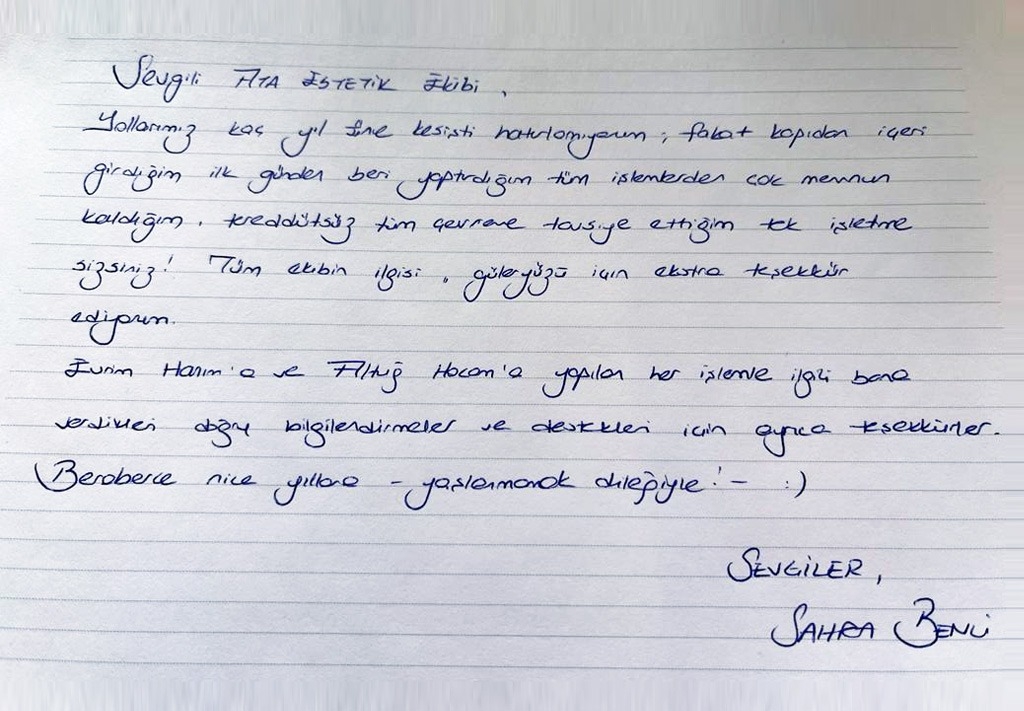 Sevgili ATA ESTETİK Ekibi,
Yollarımız kaç yıl önce kesişti hatırlamıyorum; fakat kapıdan içeri
girdiğim ilk günden beri yaptırdığım tüm işlemlerden çok memnun
kaldığım, tereddütsüz tüm çevreme tavsiye ettiğim tek işletme
sizsiniz! Tüm ekibin ilgisi, güleryüzü için ekstra teşekkür
ediyorum.
Evrim Hanım'a ve Altuğ Hocam'a yapılan her işlemle ilgili bana
verdikleri doğru bilgilendirmeler ve destekleri için ayrıca teşekkürler.
Beraberce nice yıllara - yaşlanmamak dileğiyle! - :)
SEVGİLER,
SAHRA BENLİ